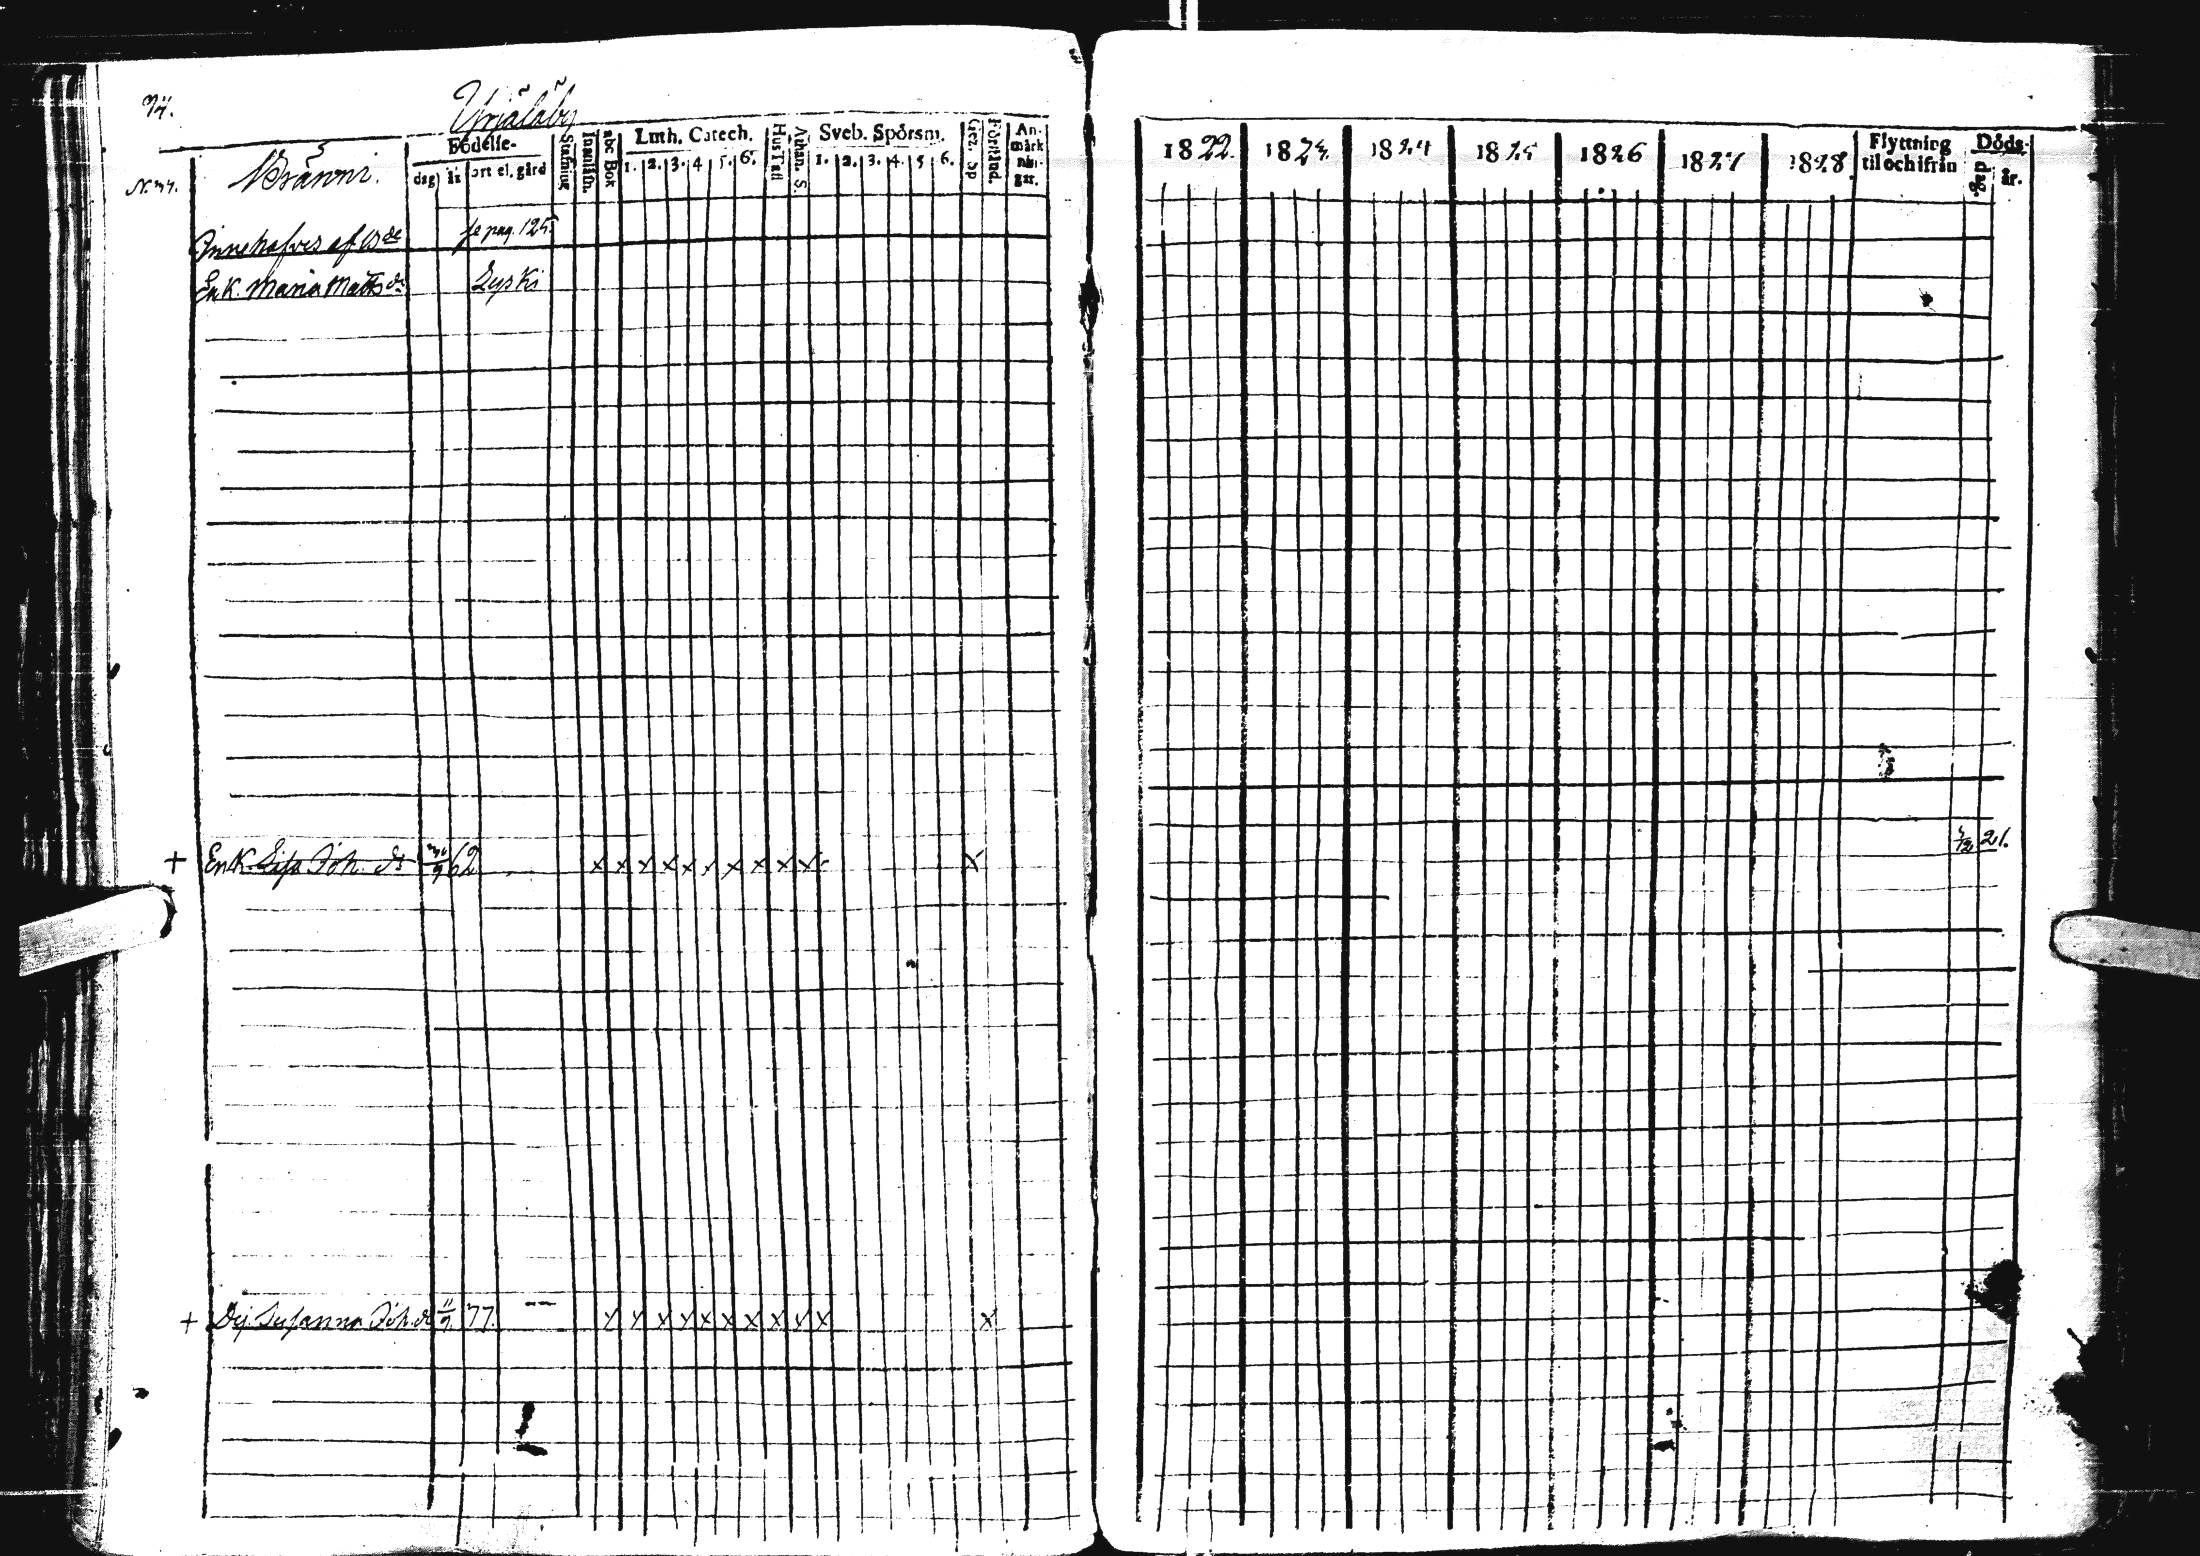 94.
Urjalaby
N. 34.
Wränni.
Födelse-
dag år ort el. gård
Stafning
Innanläsn.
abc Bok
Luth. Catech.
1. 2. 3. 4 5. 6.
Hus Tafl
Athan. S.
Sveb. Spörsm.
1. 2. 3. 4. 5 6.
Gez. Sp
Förstånd.
An-
märk
nin-
gar.
Innehafves af
se pag. 125
Enk. Maria Matts dr
Lyski
+ Enk. Lisa Joh. dr 9 62 x x x x x x x x x x x
+ Dej. Susanna Joh. dr 11/9 77. x x x x x x x x x x x
1822. 1823. 1824 1825 1826 1827 1828.
Flyttning
til och ifrån
Döds-
dag. år.
21.